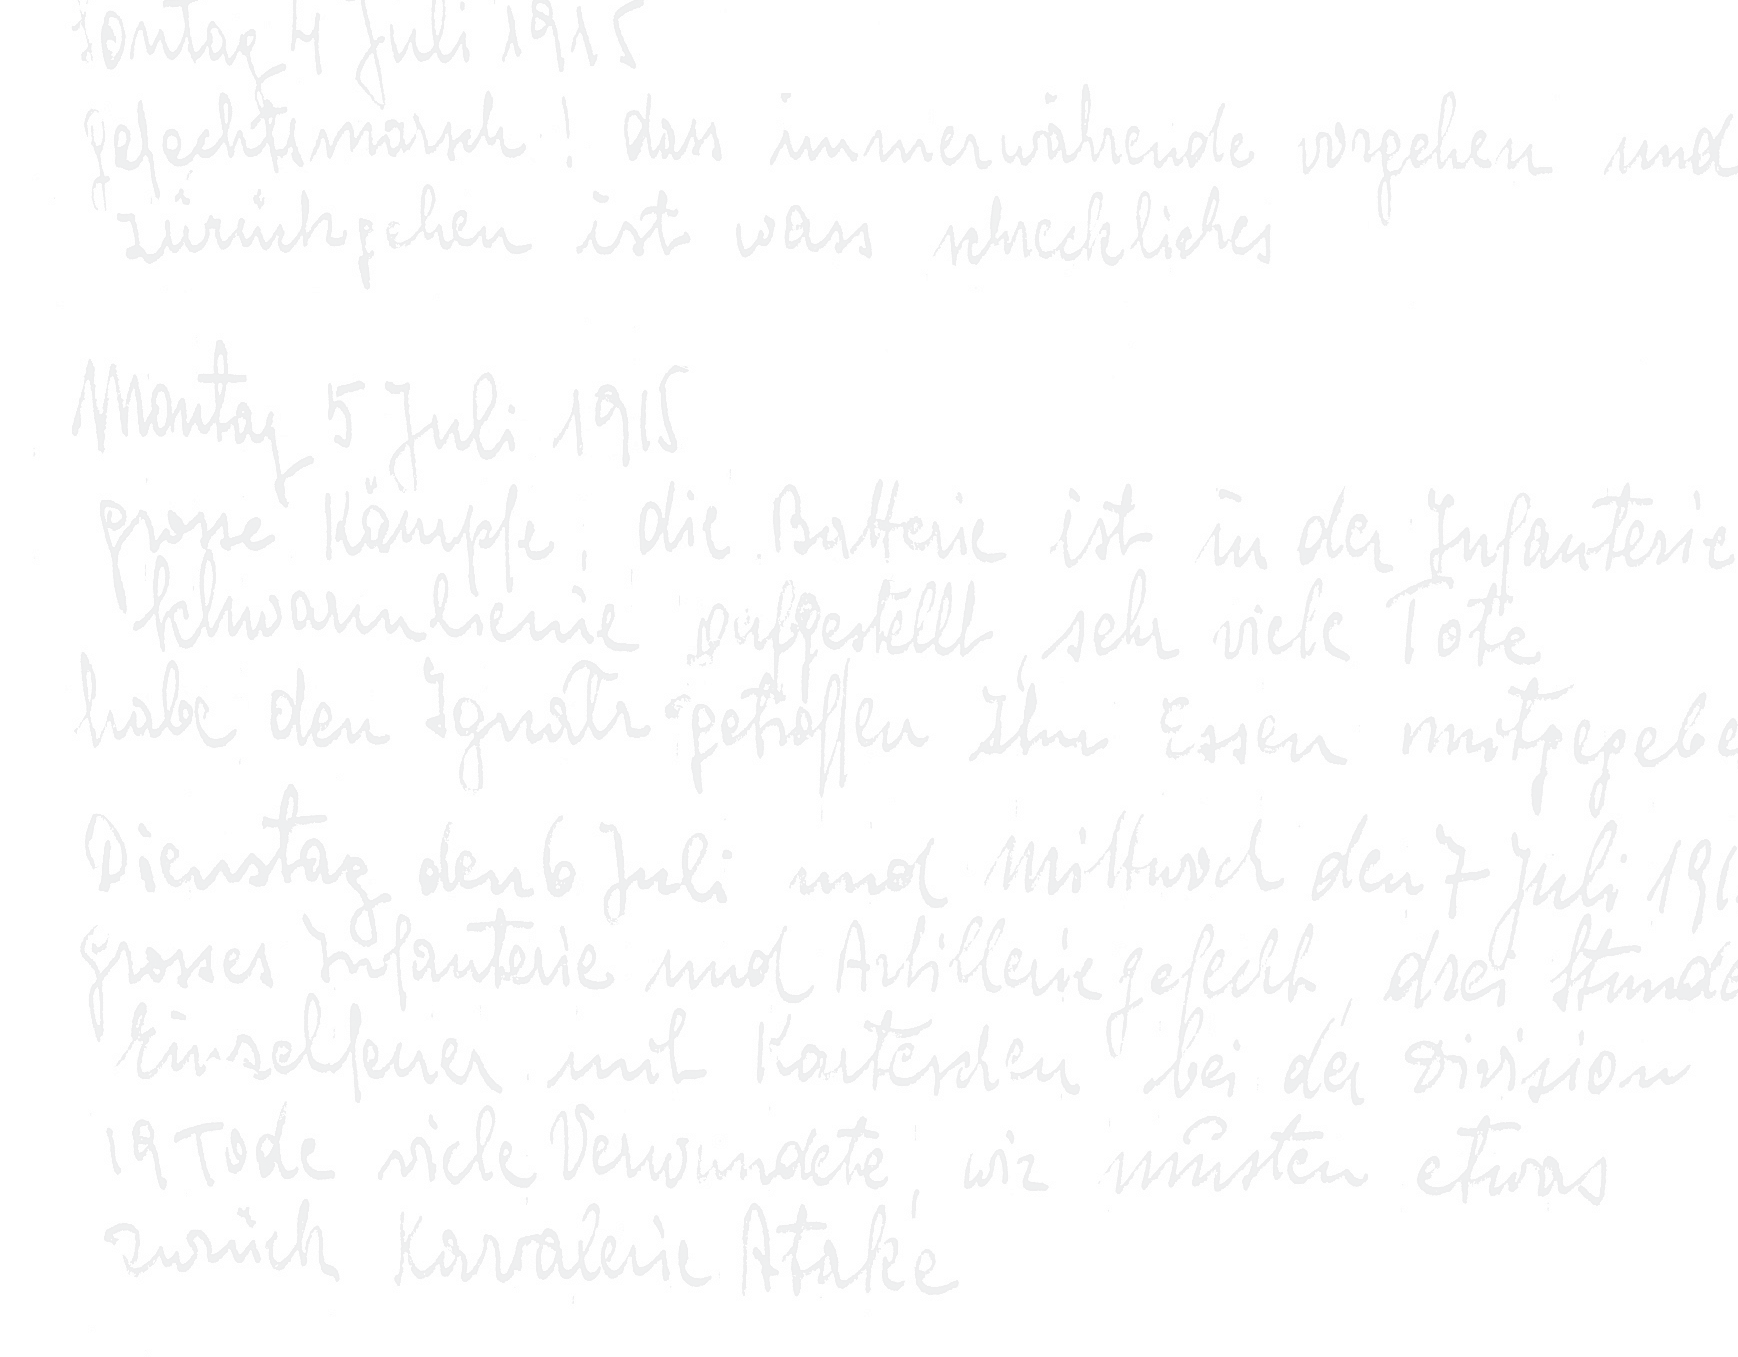 Sontag 4 Juli 1915
gefechtsmarsch ! dass immerwährende vorgehen und
zürückgehen ist wass schreckliches
Montag 5 Juli 1915
grosse Kämpfe, die Batterie ist in der Infanterie
schwarmlienie aufgestellt, sehr viele Tote
habe den Ignatz getroffen Ihm Essen mitgegebe
Dienstag den 6 Juli und Mittwoch den 7 Juli 191
grosses Infanterie und Artilleriegefecht, drei Stunde
Einselfeuer mit Karteschen bei der Division
19 Tode viele Verwundete, wir musten etwas
zurück Kavalerie Atake